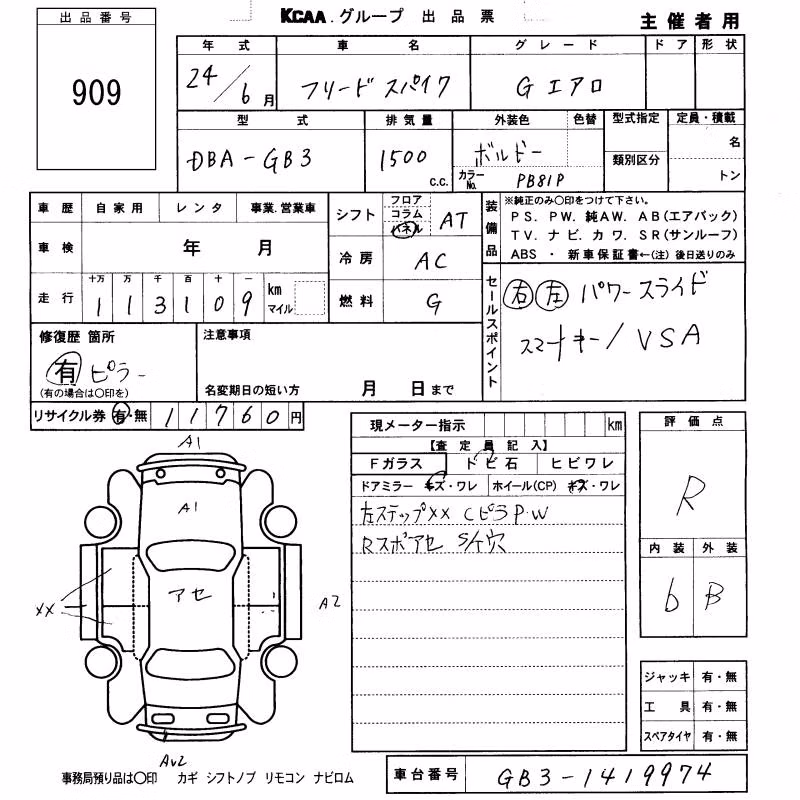 出品番号
KCAA.グループ 出品票
主催者用
909
年式 車名 グレード ドア 形状
24/6月 フリードスパイク Gエアロ
型式 排気量 外装色 色替 型式指定 定員・積載
DBA-GB3 1500 c.c. ボルドー 名
カラーNo. PB81P 類別区分 トン
車歴 自家用 レンタ 事業.営業車
シフト フロア コラム パネル AT
装備品 ※純正のみ〇印をつけて下さい。
PS. PW. 純AW. AB(エアバック)
TV. ナビ. カワ. SR(サンルーフ)
ABS ・ 新車保証書←(注)後日送りのみ
車検 年 月
冷房 AC
走行 十万 万 千 百 十 一
113109 km マイル
燃料 G
セールスポイント 右 左 パワースライド
スマートキー/VSA
修復歴 箇所
有 ピラー
(有の場合は〇印を)
注意事項
名変期日の短い方 月 日まで
リサイクル券 有・無 11760円
現メーター指示 km
【査定員記入】
Fガラス トビ石 ヒビワレ
ドアミラー キズ・ワレ ホイール(CP) キズ・ワレ
左ステップXX CピラP.W
Rスポアセ S/ケ穴
評価点
R
内装 外装
6 B
A1
A1
アセ
XX
A2
AU2
ジャッキ 有・無
工具 有・無
スペアタイヤ 有・無
事務局預り品は〇印 カギ シフトノブ リモコン ナビロム
車台番号 GB3-1419974